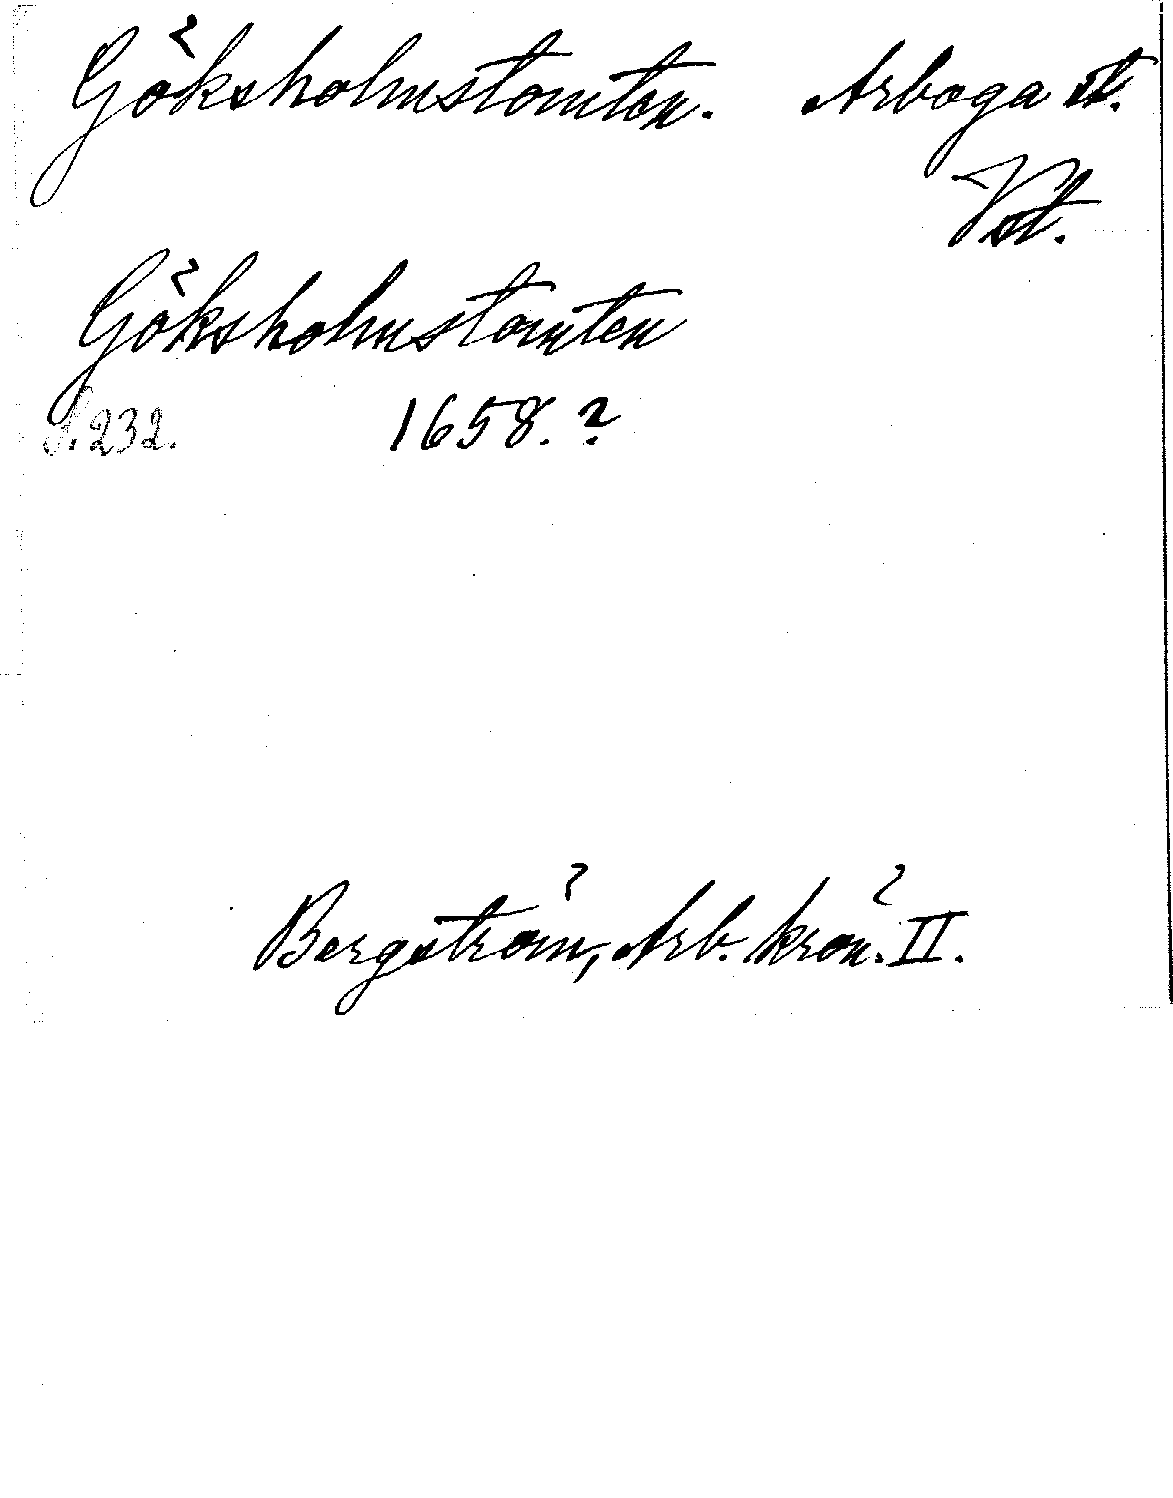 Göksholmstomten. Arboga st.
Vst.
Göksholmstomten
S. 232. 1658.?
Bergström, Arb. krön. II.